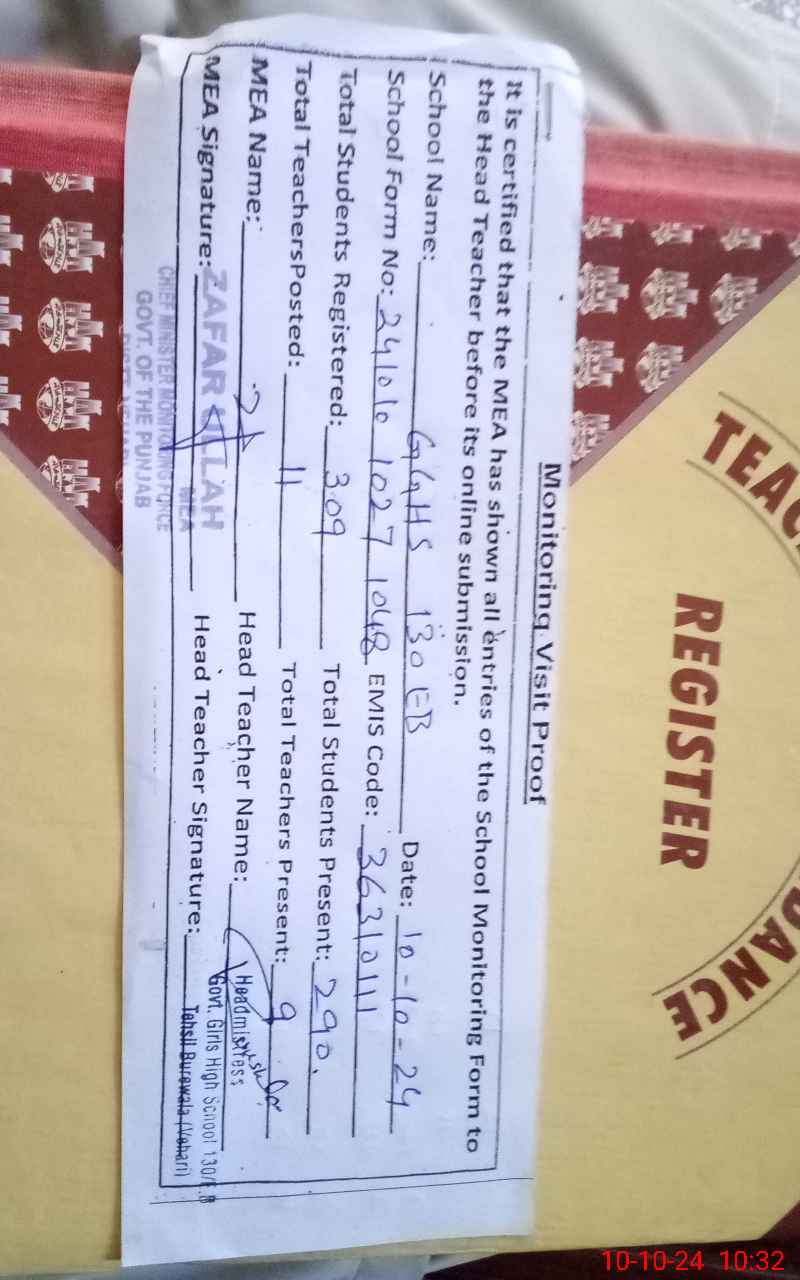 Monitoring Visit Proof
It is certified that the MEA has shown all entries of the School Monitoring Form to
the Head Teacher before its online submission.
School Name: GGHS 130 EB Date: 10-10-24
School Form No: 241010 1027 1048 EMIS Code: 36310111
Total Students Registered: 309 Total Students Present: 290.
Total TeachersPosted: 11 Total Teachers Present: 9
MEA Name: Head Teacher Name:
MEA Signature: Head Teacher Signature:
ZAFAR ULLAH
MEA
CHIEF MINISTER MONITORING FORCE
GOVT. OF THE PUNJAB
Headmistress
Govt. Girls High School 130/E.B
Tehsil Burewala (Vehari)
REGISTER
10-10-24 10:32